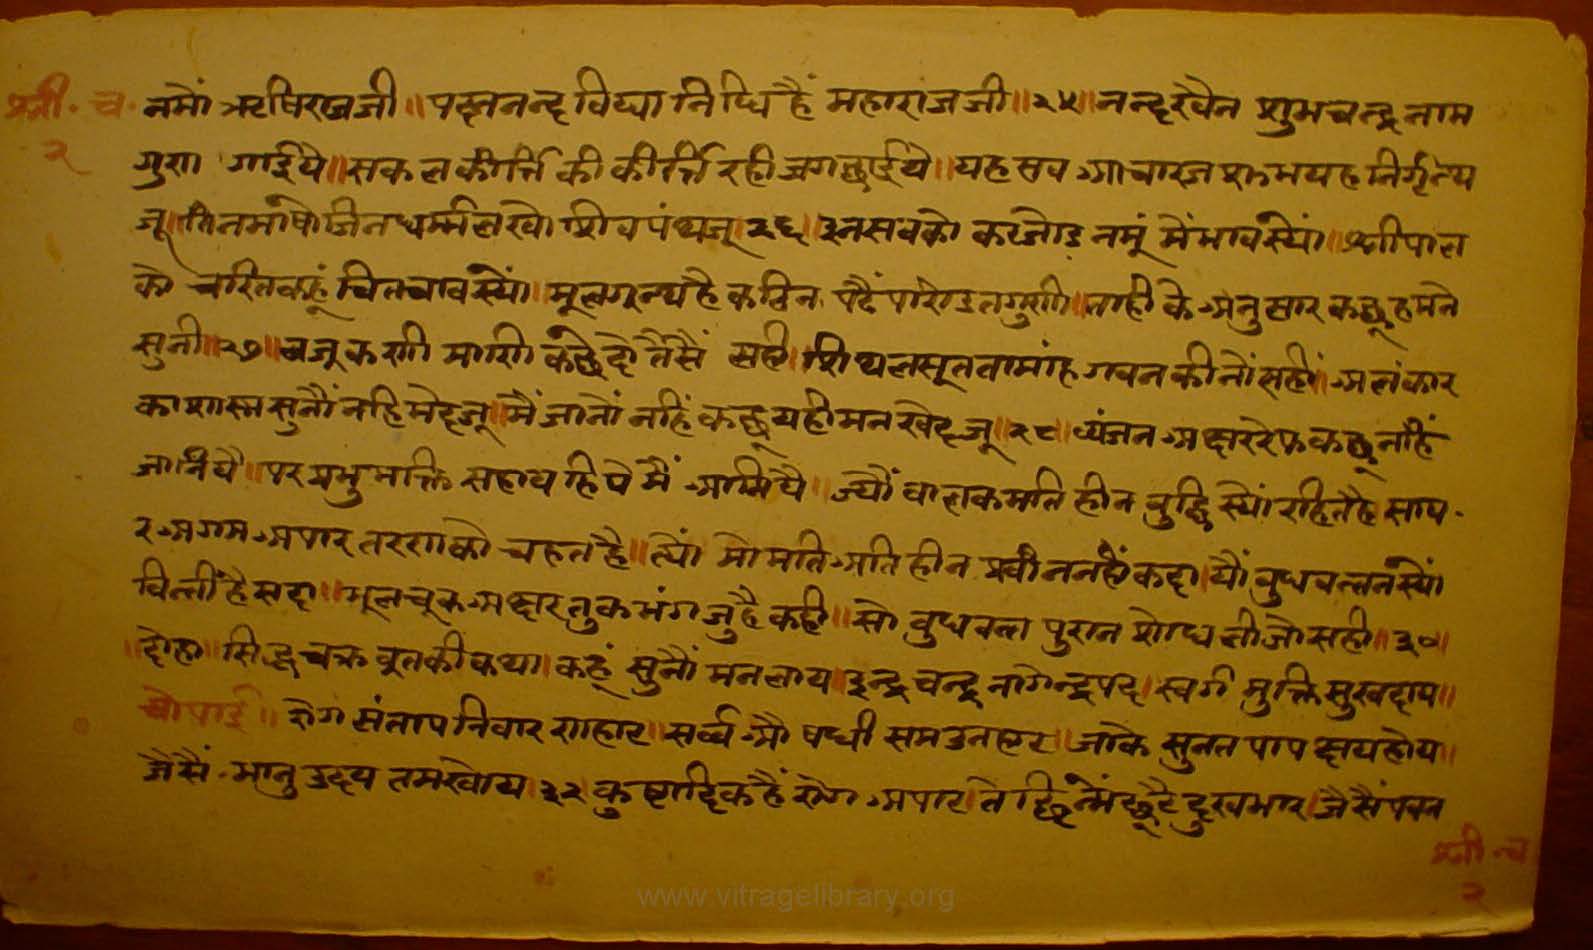 श्री. च. नमों ऋषिराजजी॥ पद्मनन्द विद्या निधि हैं महाराजजी॥२५॥ नन्द रवैन शुभचन्द्र नाम
२ गुण गाईयै॥ सकलकीर्त्ति की कीर्त्ति रही जग छाईयै॥ यह सब आचारज यह निर्ग्रन्थ
जू॥ तिन भाषो जिन धर्म्म लखो शिव पंथ जू॥२६॥ इन सबको कर जोड़ नमूं मैं भाव स्यों॥ श्रीपाल
को चरित कहूं चित चाव स्यों॥ मूल ग्रन्थ है कठिन पढैं गुणी॥ ताही के अनुसार कछू हमने
सुनी॥२७॥ वज्र कणी मणी तैसैं सही॥ शिथल सूत ता मांह गवन कीनों सही॥ अलंकार
का शास्त्र सुनौं नहि भेद जू॥ मैं जानों नहिं कछू यही मन खेद जू॥२८॥ व्यंजन अक्षर रेफ कछू नहिं
जानियै॥ पर प्रभु भक्ति सहाय हिये मैं आनियै॥ ज्यों बालक मति हीन बुद्धि स्यों रहित है साय-
र अगम अपार तरण को चहत है॥ त्यों मो मति अति हीन प्रवीन नहीं कदा॥ यौं बुधवन्तन स्यों
विनती है सदा॥ भूल चूक अक्षर तुक भंग जु है कही॥ सो बुधवन्त पुरान शोध लीजो सही॥३०॥
॥दोहा॥ सिद्धचक्र व्रत की कथा॥ कहूं सुनौं मन लाय॥ इन्द्र चन्द्र नागेन्द्र पद॥ स्वर्ग मुक्ति सुखदाय॥
चौपाई॥ रोग संताप निवारणहार॥ सर्व्व औषधी सम उनहार॥ जाकै सुनत पाप क्षय होय॥
जैसैं भानु उदय तम खोय॥३२॥ कुष्टादिक हैं रोग अपार॥ ते छिन मैं छूटै दुख भार॥ जैसैं पवन
श्री. च
२
www.vitragelibrary.org